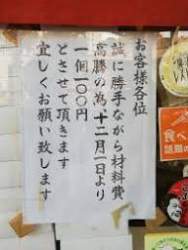 お客様各位
誠に勝手ながら材料費
高勝の為十二月一日より
一個一〇〇円
とさせて頂きます
宜しくお願い致します
食べ
話題の